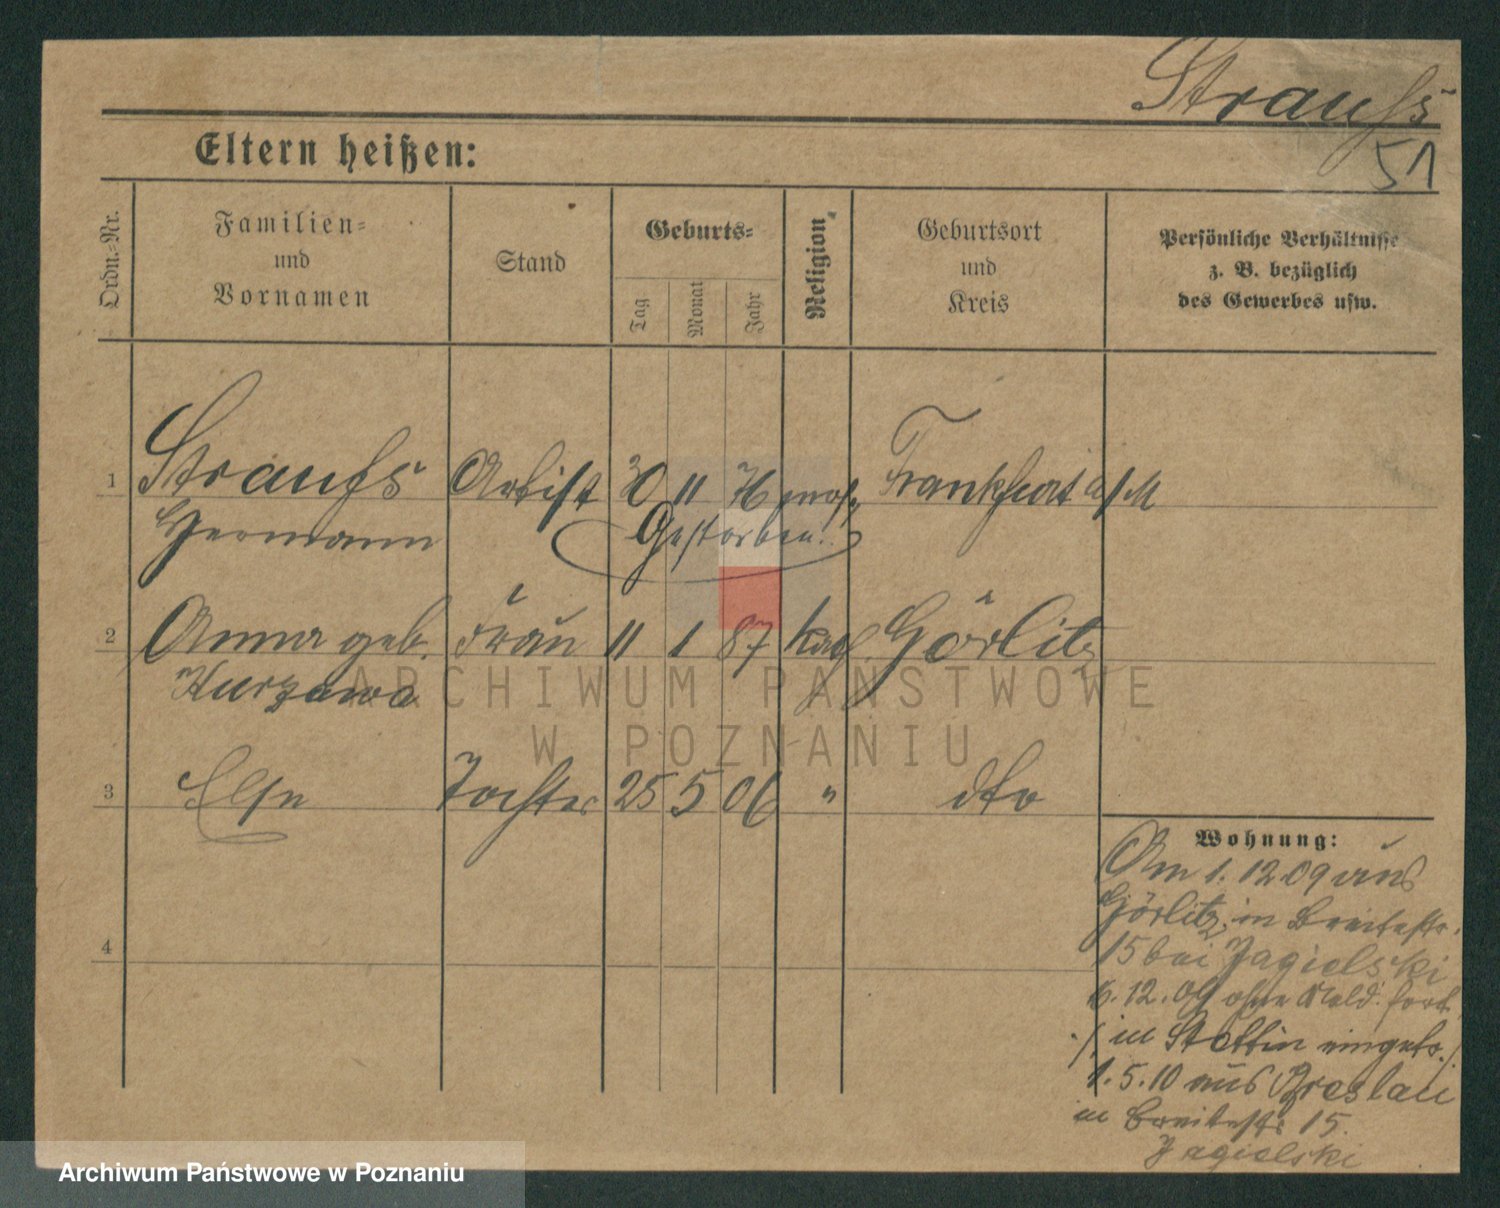 Strauß
51
Eltern heißen:
Ordn.-Nr.
Familien-
und
Vornamen
Stand
Geburts-
Tag
Monat
Jahr
Religion
Geburtsort
und
Kreis
Persönliche Verhältnisse
z. B. bezüglich
des Gewerbes usw.
1 Strauß Artist 30 11 76 mos. Frankfurt a/M
Hermann Gestorben.
2 Anna geb. Frau 11 1 87 kath. Görlitz
Kurzawa
3 Else Tochter 25 5 06 " dto
4
Wohnung:
Am 1.12.09 aus
Görlitz in Breitestr.
15 bei Jagielski
6.12.09 ohne Meld. fort
./. in Stettin eingetr. /.
1.5.10 aus Breslau
in Breitestr 15.
Jagielski
ARCHIWUM PAŃSTWOWE
W POZNANIU
Archiwum Państwowe w Poznaniu